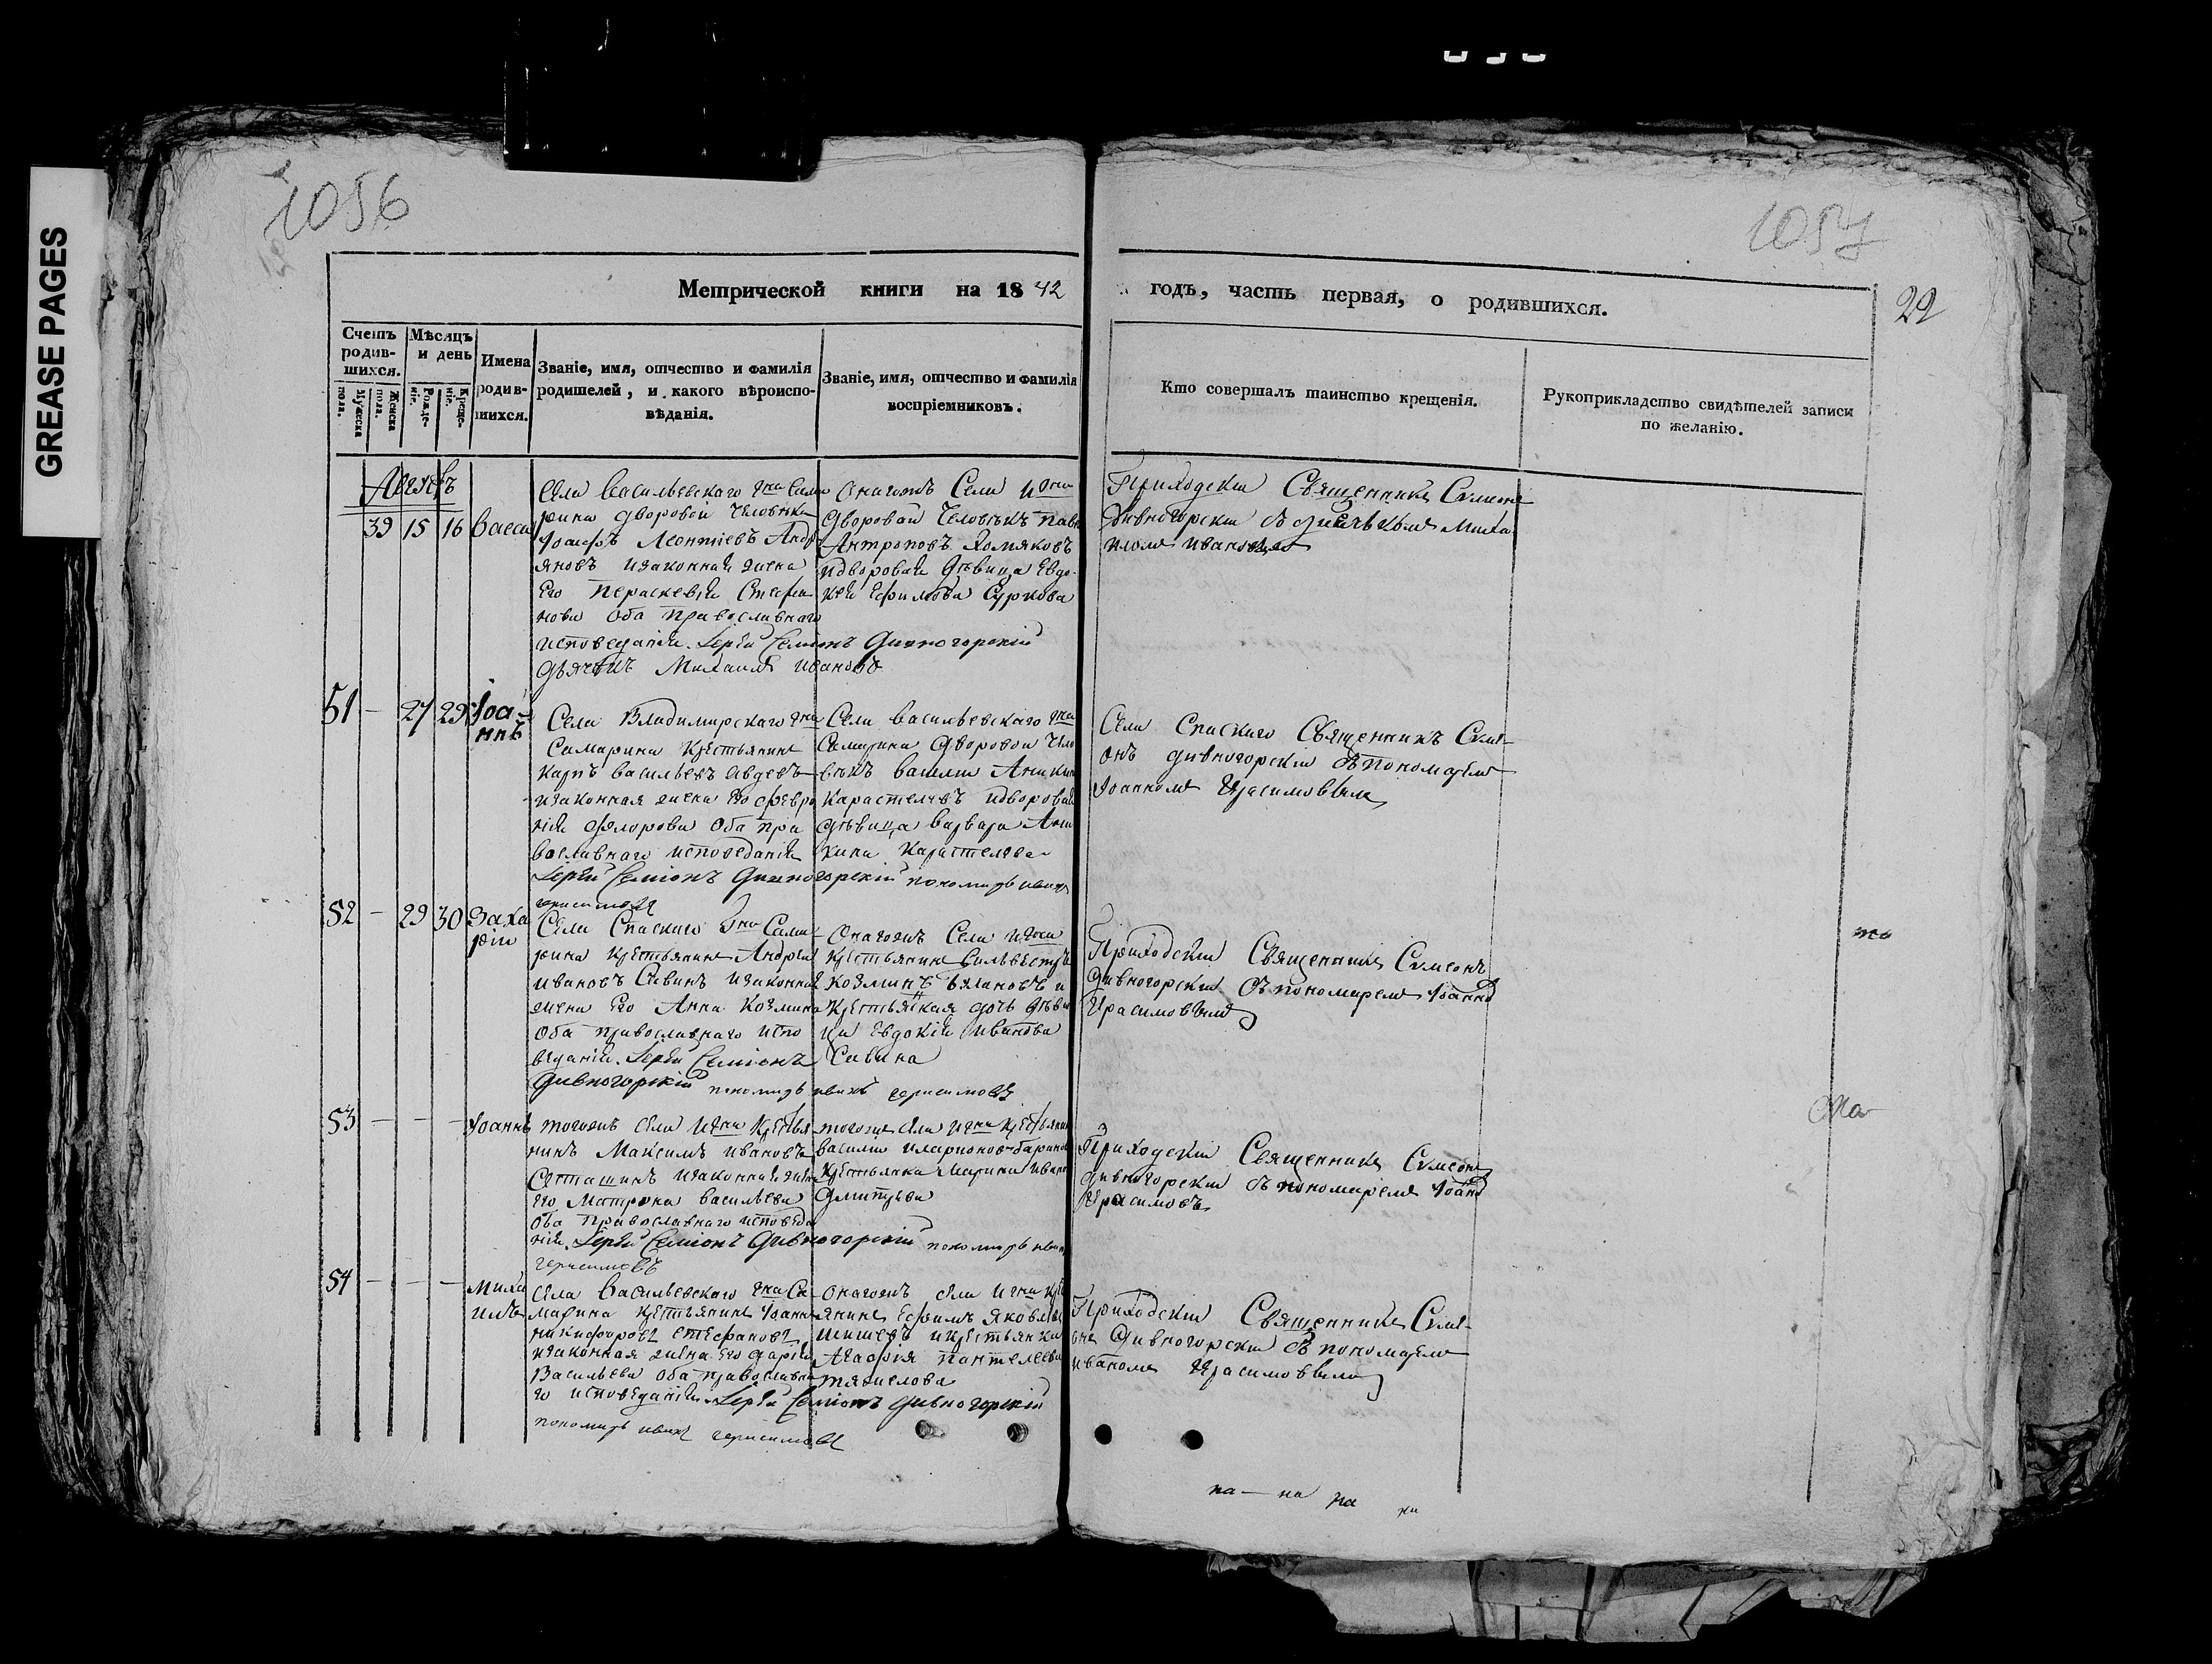 GREASE PAGES
1056
1057
22
Метрической книги на 1842
годъ, часть первая, о родившихся.
Счетъ родив-шихся.
Мужеска пола.
Женска пола.
Мѣсяцъ и день
Рожде-нiе.
Креще-нiе.
Имена родив-шихся.
Званiе, имя, отчество и фамилiя
родителей, и какого вѣроиспо-
вѣданiя.
Званiе, имя, отчество и фамилiя
воспрiемниковъ.
Кто совершалъ таинство крещенiя.
Рукоприкладство свидѣтелей записи
по желанiю.
Августъ
39 15 16 Васса
Села Васильевскаго гна Сама
рина дворовой человѣкъ
Iосифъ Леонтiевъ Андр
яновъ изаконная жена
Его Параскевiя Стефа
нова Оба православнаго
исповеданiя. Iерей Семiонъ Дивногорскiй
дьячекъ Михаилъ Ивановъ
Онагожъ Села игна
дворовой человѣкъ Паве
Антроповъ Хомяковъ
идворовая дѣвица Евдо
кея Ефимова Суркова
Приходскiй Священникъ Сумеонъ
Дивногорскiй съ дьячькомъ Миха
иломъ Ивановымъ
51 – 27 29 Iоа-
ннъ
Села Владимирскаго гна
Самарина Крестьянинъ
Карпъ Васильевъ Авдеевъ
изаконная жена Его Февро
нiя Федорова Оба пра
вославнаго исповеданiя
Iерей Семiонъ Дивногорскiй пономарь Иванъ
герасимовъ
Села Васильевскаго гна
Самарина Дворовой чело
вѣкъ Василiй Аникин
Карастелевъ идворовая
дѣвица Варвара Ани
кина Карастелева
Села Спаскаго Священникъ Суме-
онъ Дивногорскiй съ пономаремъ
Iоанномъ Герасимовымъ
52 – 29 30 Заха
рiй
Села Спаскаго Гна Сама
рина крестьянинъ Андрей
Ивановъ Савинъ изаконная
жена Его Анна Козмина
Оба православнаго испо
веданiя. Iерей Семiонъ
Дивногорскiй пономарь Иванъ герасимовъ
Онагожъ Села игна
Крестьянинъ Сильвестръ
Козминъ и
Крестьянская дочь дѣви
ца Евдокiя Иванова
Савина
Приходскiй Священникъ Сумеонъ
Дивногорскiй съ пономаремъ Iоанно
Герасимовымъ
53 – – – Iоаннъ
тогожъ Села игна Крестья
нинъ Максимъ Ивановъ
изаконная жена
Его Матрона Васильева
Оба православнаго исповеда
нiя. Iерей Семiонъ Дивногорскiй пономарь Иван
герасимовъ
тогожъ Села игна Крестьянин
Василiй Иларионовъ Барин
Крестьянка Марина Иван
Дмитрева
Приходскiй Священникъ Сумеонъ
Дивногорскiй съ пономаремъ Iоанно
Герасимовъ
54 – – – Миха
илъ
Села Васильевскаго гна Са
марина крестьянинъ Iоаннъ
Никифоровъ Стефановъ
изаконная жена Его Дарiя
Васильева Оба православна
го исповеданiя. Iерей Семiонъ Дивногорскiй
пономарь Иванъ герасимовъ
Онагожъ Села игна кре
янинъ Ефимъ Яковлевъ
Шишевъ икрестьянка
Агафiя Пантелеева
Тяжелова
Приходскiй Священникъ Суме-
онъ Дивногорскiй съ пономаремъ
Иваномъ Герасимовымъ
на – на на на